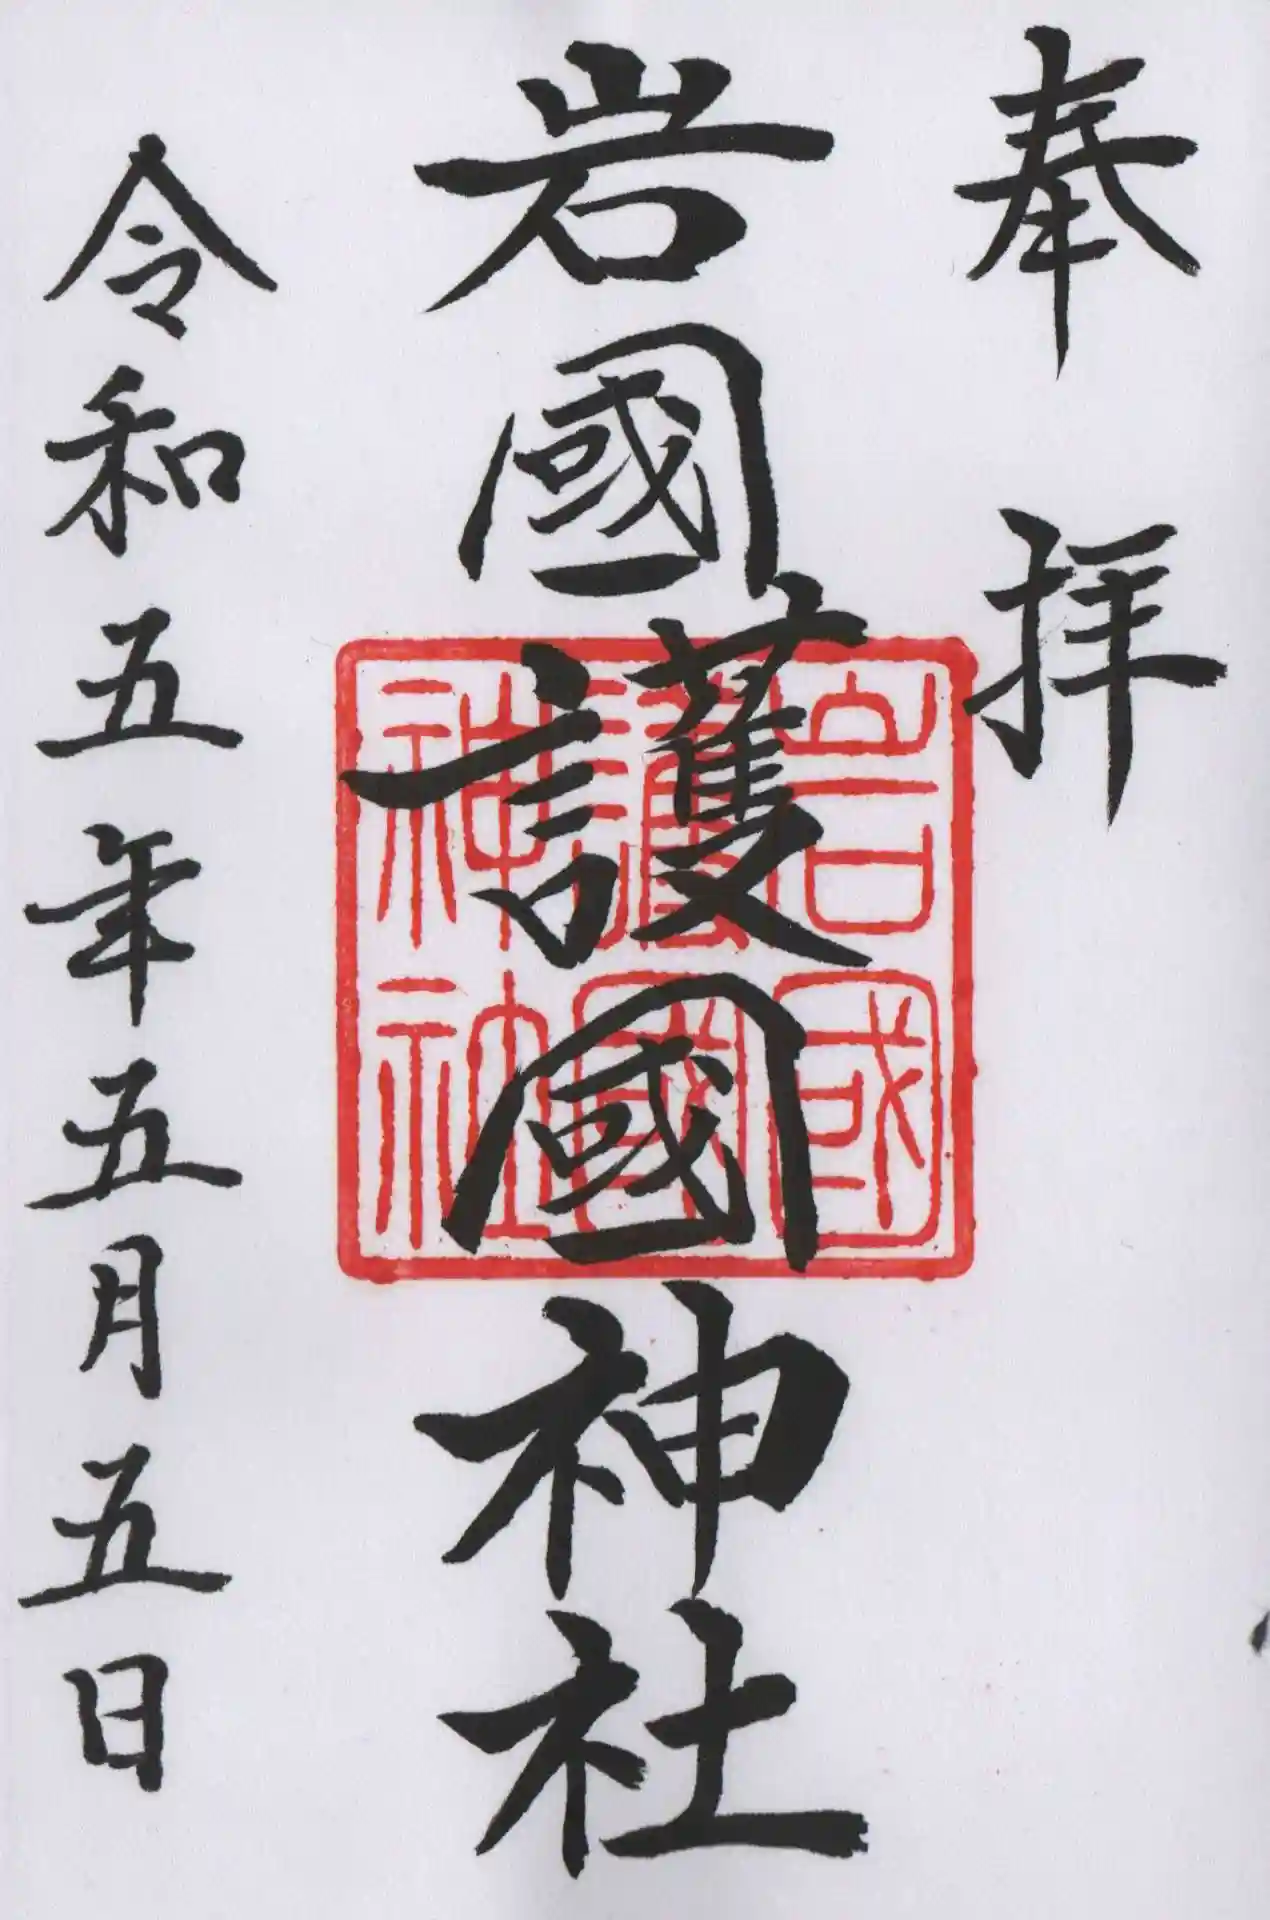 奉拝
岩國護國神社
岩國
護國
神社
令和五年五月五日